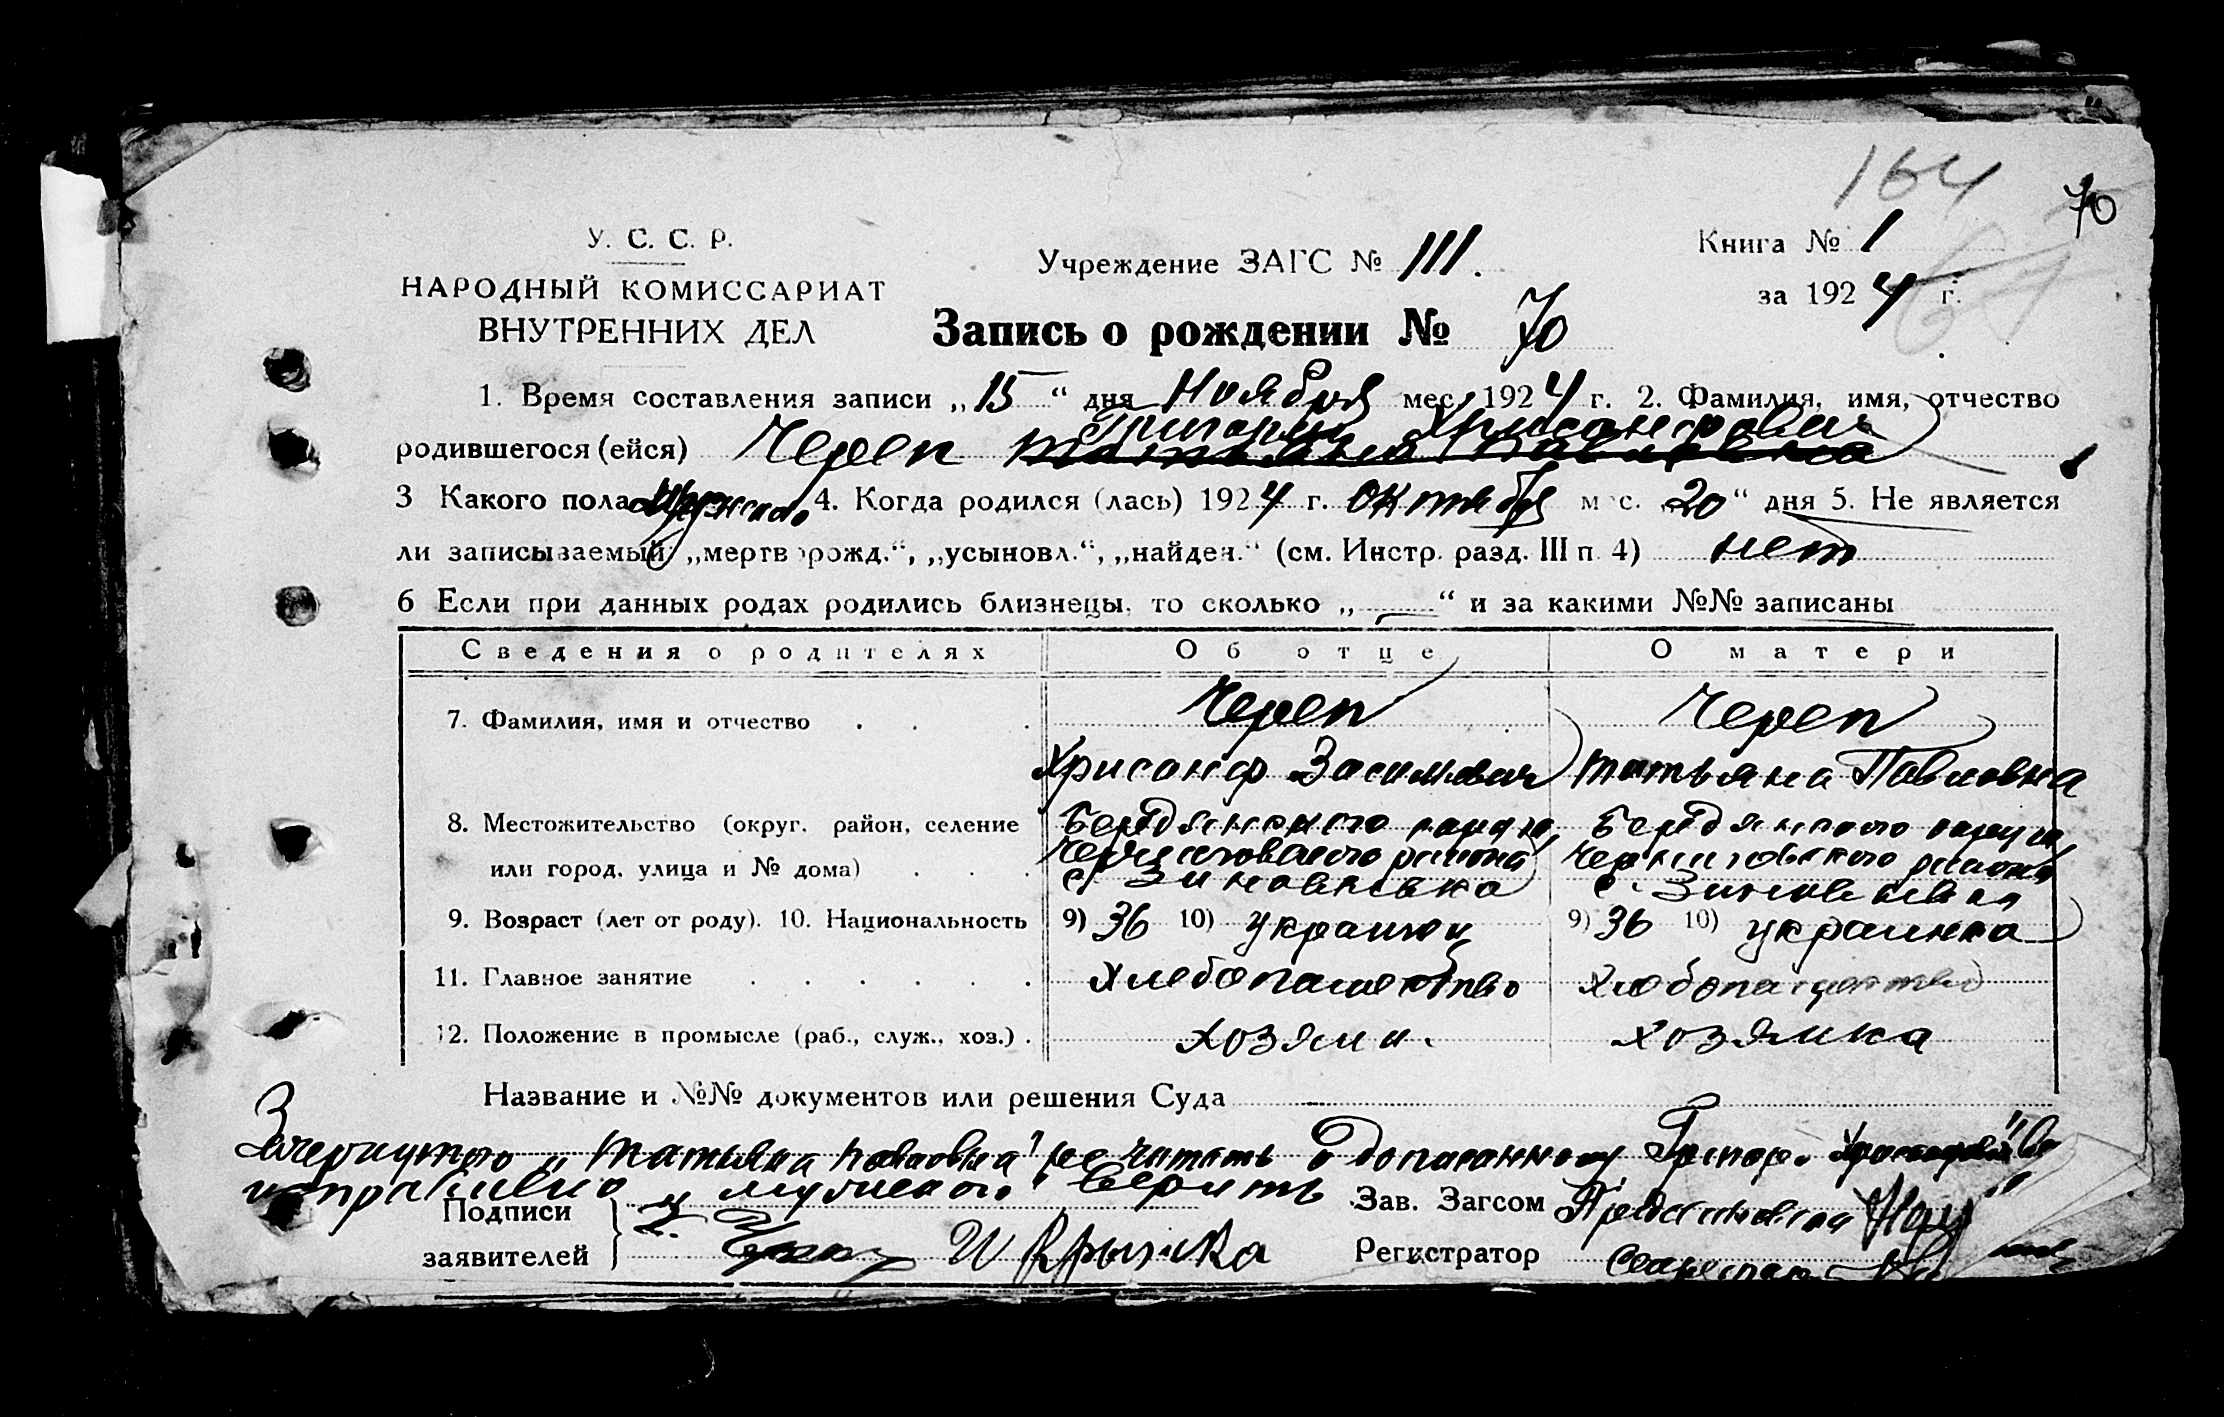 164
70
У. С. С. Р.
НАРОДНЫЙ КОМИССАРИАТ
ВНУТРЕННИХ ДЕЛ
Учреждение ЗАГС № 111.
Книга № 1
за 1924 г.
67
Запись о рождении № 70
1. Время составления записи „15" дня Ноября мес. 1924 г. 2. Фамилия, имя, отчество
Григорий Хрисанфович
родившегося (ейся) Череп Татьяна Павловна
3 Какого пола Мужского 4. Когда родился (лась) 1924 г. Октября мес. „20" дня 5. Не является
ли записываемый „мертворожд.", „усыновл.", „найден." (см. Инстр. разд. III п. 4) нет
6 Если при данных родах родились близнецы, то сколько „—" и за какими №№ записаны —
Сведения о родителях Об отце О матери
7. Фамилия, имя и отчество . . . Череп Череп
Хрисанф Засимович Татьяна Павловна
8. Местожительство (округ, район, селение Бердянского округа, Бердянского округа
или город, улица и № дома) . . . Черниговского района Черниговского района
с. Зиновьевка с. Зиновьевка
9. Возраст (лет от роду). 10. Национальность 9) 36 10) украинец 9) 36 10) украинка
11. Главное занятие . . . . . . хлебопашество хлебопашество
12. Положение в промысле (раб., служ., хоз.) . хозяин. хозяйка
Название и №№ документов или решения Суда —
Зачеркнутого „Татьяна Павловна" не читать а дописанному Григорий
исправлено „мужского" верить
Подписи
заявителей
Зав. Загсом
Регистратор Секретарь